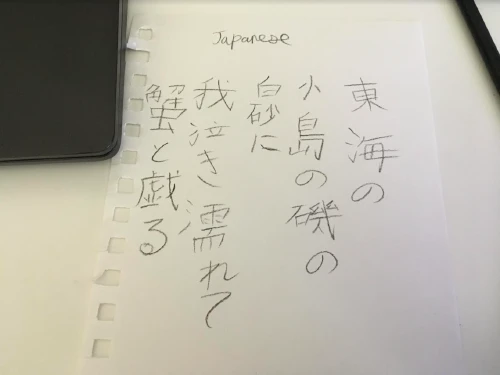 Japanese
東海の
小島の磯の
白砂に
我泣き濡れて
蟹と戯る